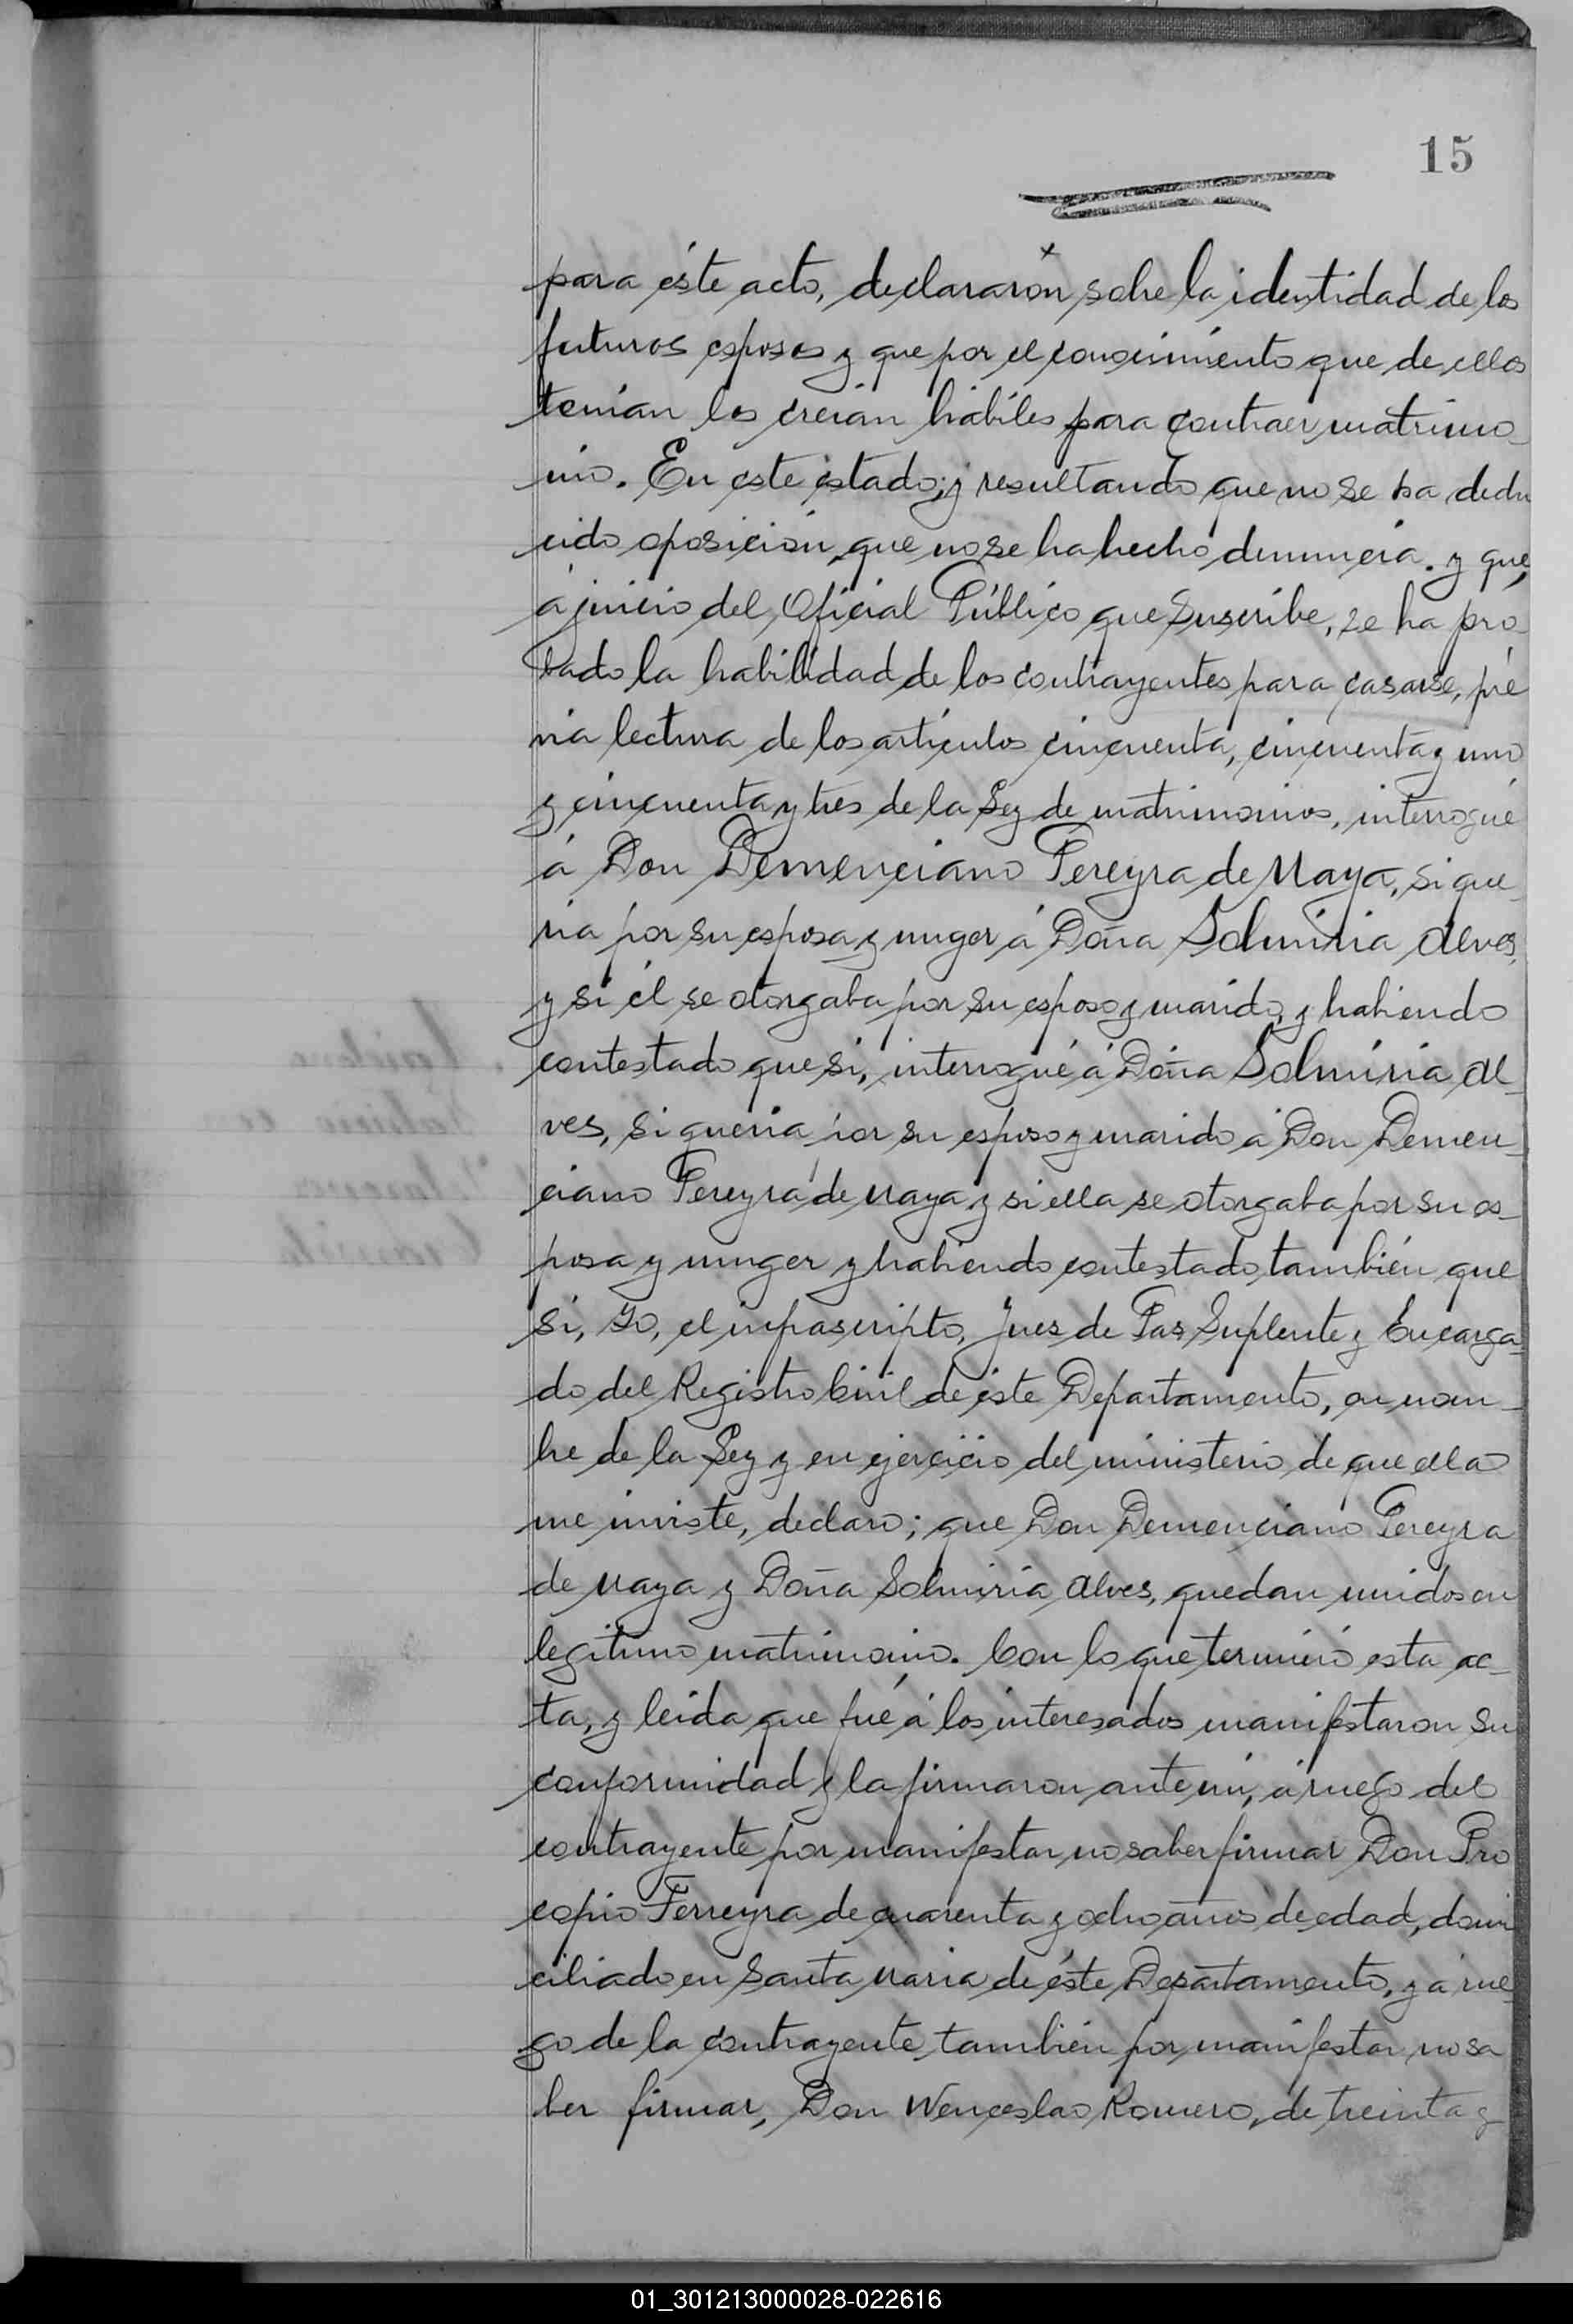 15
para éste acto, declararón sobre la identidad de los
futuros esposos y que por el conocimiento que de ellos
tenian los creian hábiles para contraer matrimo-
nio. En este estado; y resultando que no se ha dedu
cido oposición que no se ha hecho denuncia. y que,
á juicio del Oficial Público que suscribe, se ha pro-
bado la habilidad de los contrayentes para casarse, pré
via lectura de los articulos cincuenta, cincuenta y uno
y cincuenta y tres de la Ley de matrimonios, interrogué
á Don Demenciano Pereyra de Maya, si que-
ria por su esposa y muger á Doña Solmiria Alves,
y si él se otorgaba por su esposo y marido, y habiendo
contestado que si, interrogué á Doña Solmiria Al-
ves, si queria por su esposo y marido á Don Demen-
ciano Pereyra de Maya y si ella se otorgaba por su es-
posa y muger y habiendo contestado también que
si, Yo, el infrascripto, Jues de Pas Suplente y Encarga-
do del Registro Civil de éste Departamento, en nom-
bre de la Ley y en ejercicio del ministerio de que ella
me inviste, declaro; que Don Demenciano Pereyra
de Maya y Doña Solmiria Alves, quedan unidos en
legitimo matrimonio. Con lo que terminó esta ac-
ta, y leida que fué á los interesados manifestaron su
conformidad y la firmaron ante mi, á ruego del
contrayente por manifestar no saber firmar Don Pro
copio Ferreyra de cuarenta y ocho años de edad, domi
ciliado en Santa Maria de éste Departamento, y á rue
go de la contrayente también por manifestar no sa
ber firmar, Don Wenceslao Romero, de treinta y
01_301213000028-022616